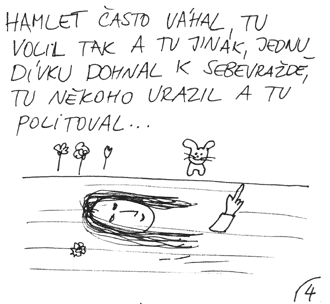 HAMLET ČASTO VÁHAL, TU
VOLIL TAK A TU JINAK, JEDNU
DÍVKU DOHNAL K SEBEVRAŽDĚ,
TU NĚKOHO URAZIL A TU
POLITOVAL...
4